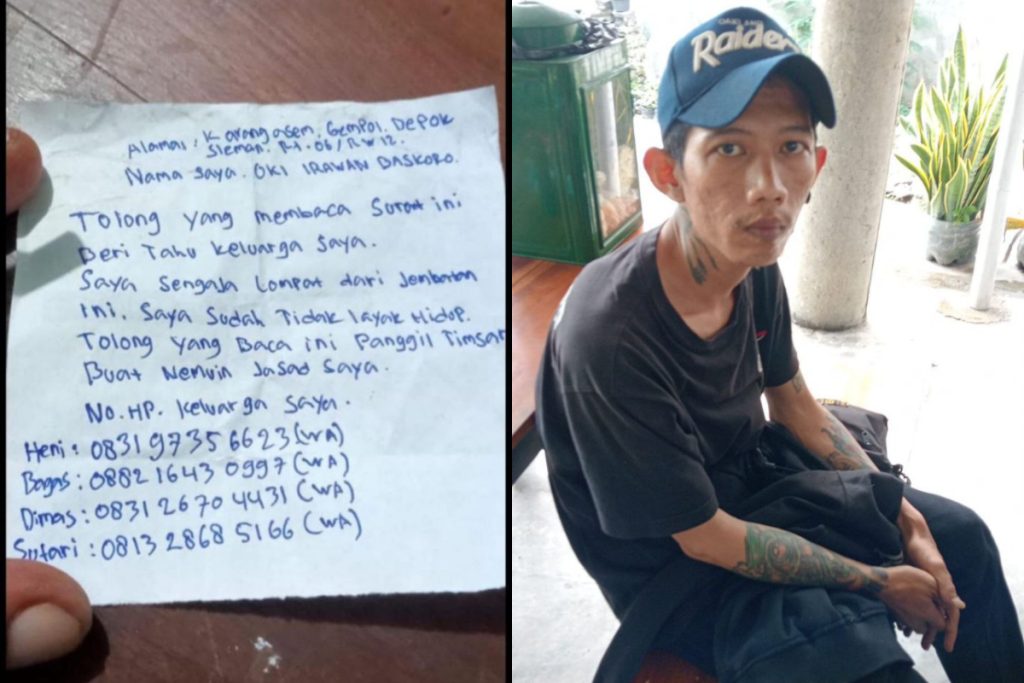 Alamat. Karangasem. Gempol. Depok
Sleman. Rt. 06/RW 12.
Nama saya. OKI IRAWAN BASKORO.
Tolong yang membaca Surat ini
Beri Tahu keluarga saya.
Saya Sengaja Lompat dari Jembatan
Ini. Saya Sudah Tidak Layak Hidup.
Tolong yang Baca ini Panggil Timsar
Buat Nemuin Jasad Saya.
No. HP. keluarga saya.
Heni : 0831 9735 6623 (WA)
Bagas : 0882 1643 0997 (WA)
Dimas : 0831 2670 4431 (WA)
Sutari : 0813 2868 5166 (WA)
OAKLAND
Raiders